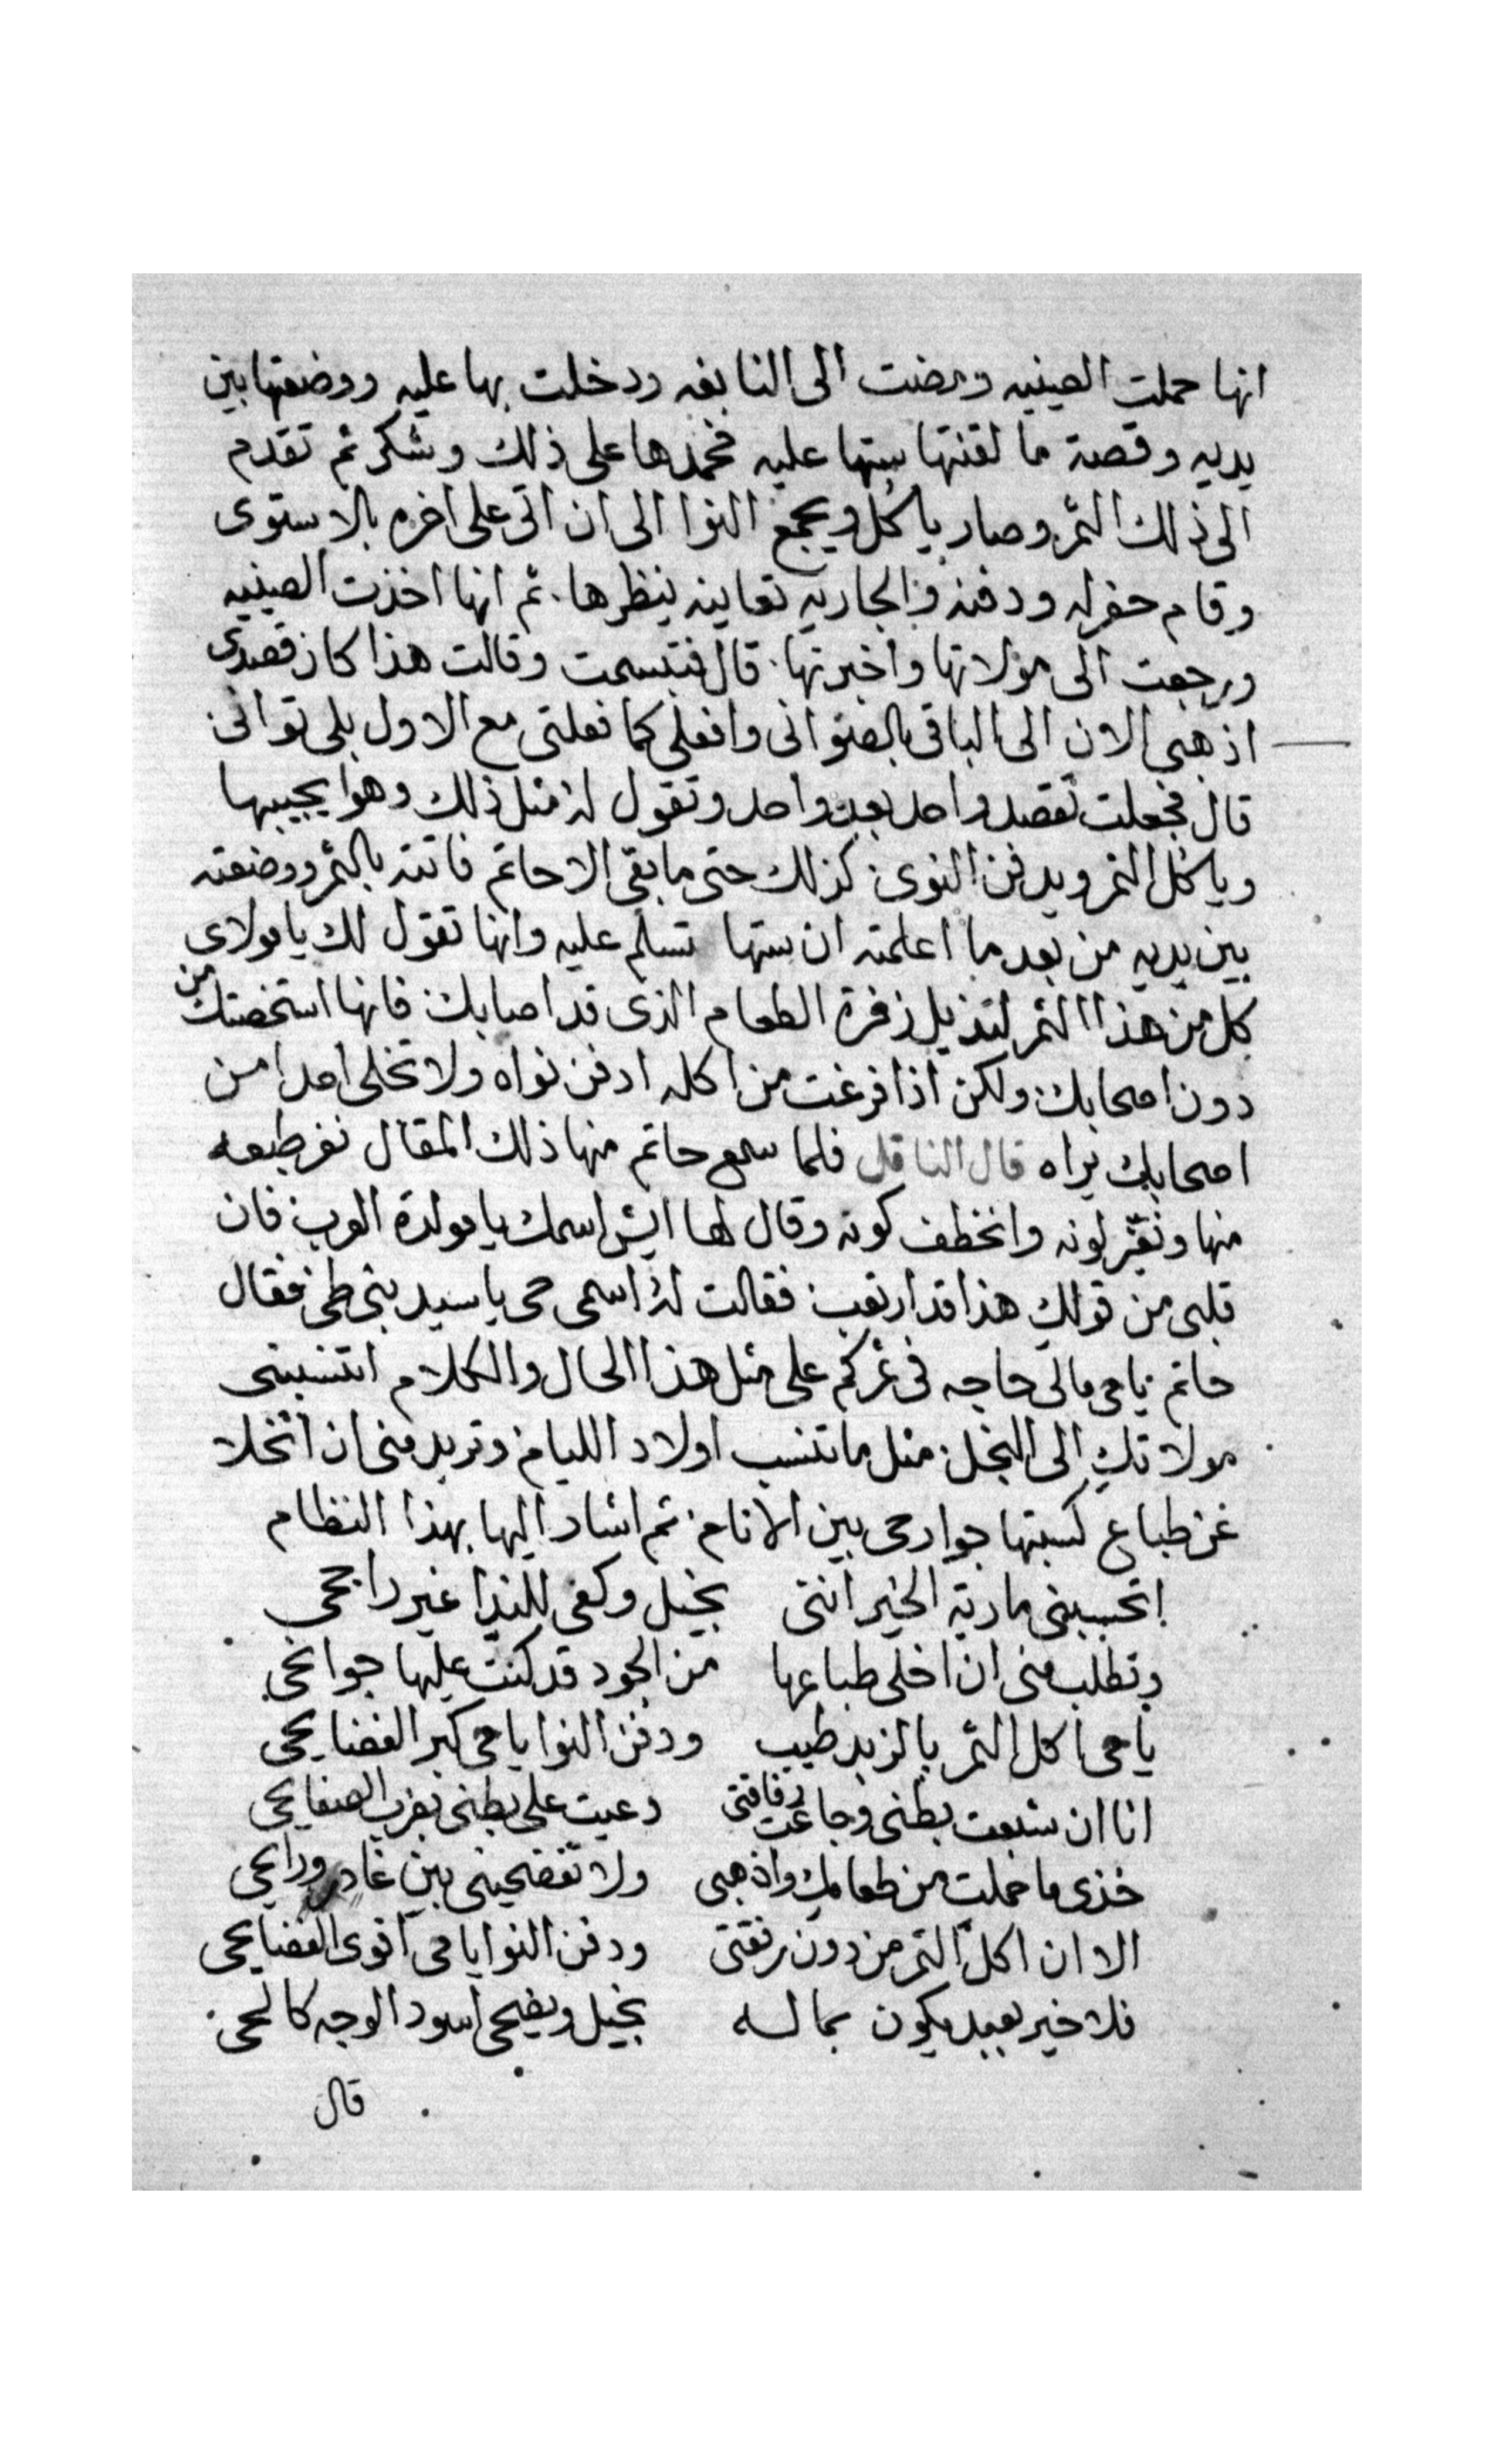 انها حملت الصينيه ومضت الى النابغه ودخلت بها عليه ووضعتها بين
يديه وقصة ما لقنتها ستها عليه فحمدها على ذلك وشكر ثم تقدم
الى ذلك التمر وصار ياكل ويجمع النوا الى ان اتى على اخره بالاستوى
وقام حفر له ودفنه والجاريه تعاينه ينظرها. ثم انها اخذت الصينيه
ورجعت الى مولاتها واخبرتها. قال فتبسمت وقالت هذا كان قصدى
اذهبى الان الى الباقى بالصوانى وافعلى كما فعلتى مع الاول بلى توانى
قال فجعلت تقصد واحد بعد واحد وتقول له مثل ذلك وهوا يجيبها
وياكل التمر ويدفن النوى كذلك حتى ما بقى الا حاتم فاتته بالتمر ووضعته
بين يديه من بعد ما اعلمته ان ستها تسلم عليه وانها تقول لك يا مولاى
كل من هذا التمر لتذيل زفرة الطعام الذى قد اصابك فانها استخصتك من
دون اصحابك ولكن اذا فرغت من اكله ادفن نواه ولا تخلى احدا من
اصحابك يراه قال الناقل فلما سمع حاتم منها ذلك المقال نفر طبعه
منها وتغير لونه وانخطف كونه وقال لها ايش اسمك يا مولدة العرب فان
قلبى من قولك هذا قد ارتعب فقالت له اسمى حى يا سيد بنى طى فقال
حاتم يا حى مالى حاجه فى تمركم على مثل هذا الحال والكلام اتنسبنى
مولاتك الى البخل مثل ما تنسب اولاد الليام وتريد منى ان اتخلا
عن طباع كسبتها جوارحى بين الانام ثم اشار اليها بهذا النظام
اتحسبنى مارية الخير اننى بخيل وكفى للندا غير راجحى
وتطلب منى ان اخلى طباعها من الجود قد كنت عليها جوانحى
يا حى اكل التمر بالزبد طيب ودفن النوا يا حى كبر الفضايحى
انا ان شبعت بطنى وجاعت رفاقتى دعيت على بطنى بضرب الصفايحى
خذى ما حملت من طعامك واذهبى ولا تفضحينى بين غاد ورايحى
الا ان اكل التمر من دون رفقتى ودفن النوا يا حى اقوى الفضايحى
فلا خير بعبد يكون بماله بخيل ويضحى اسود الوجه كالحى
قال